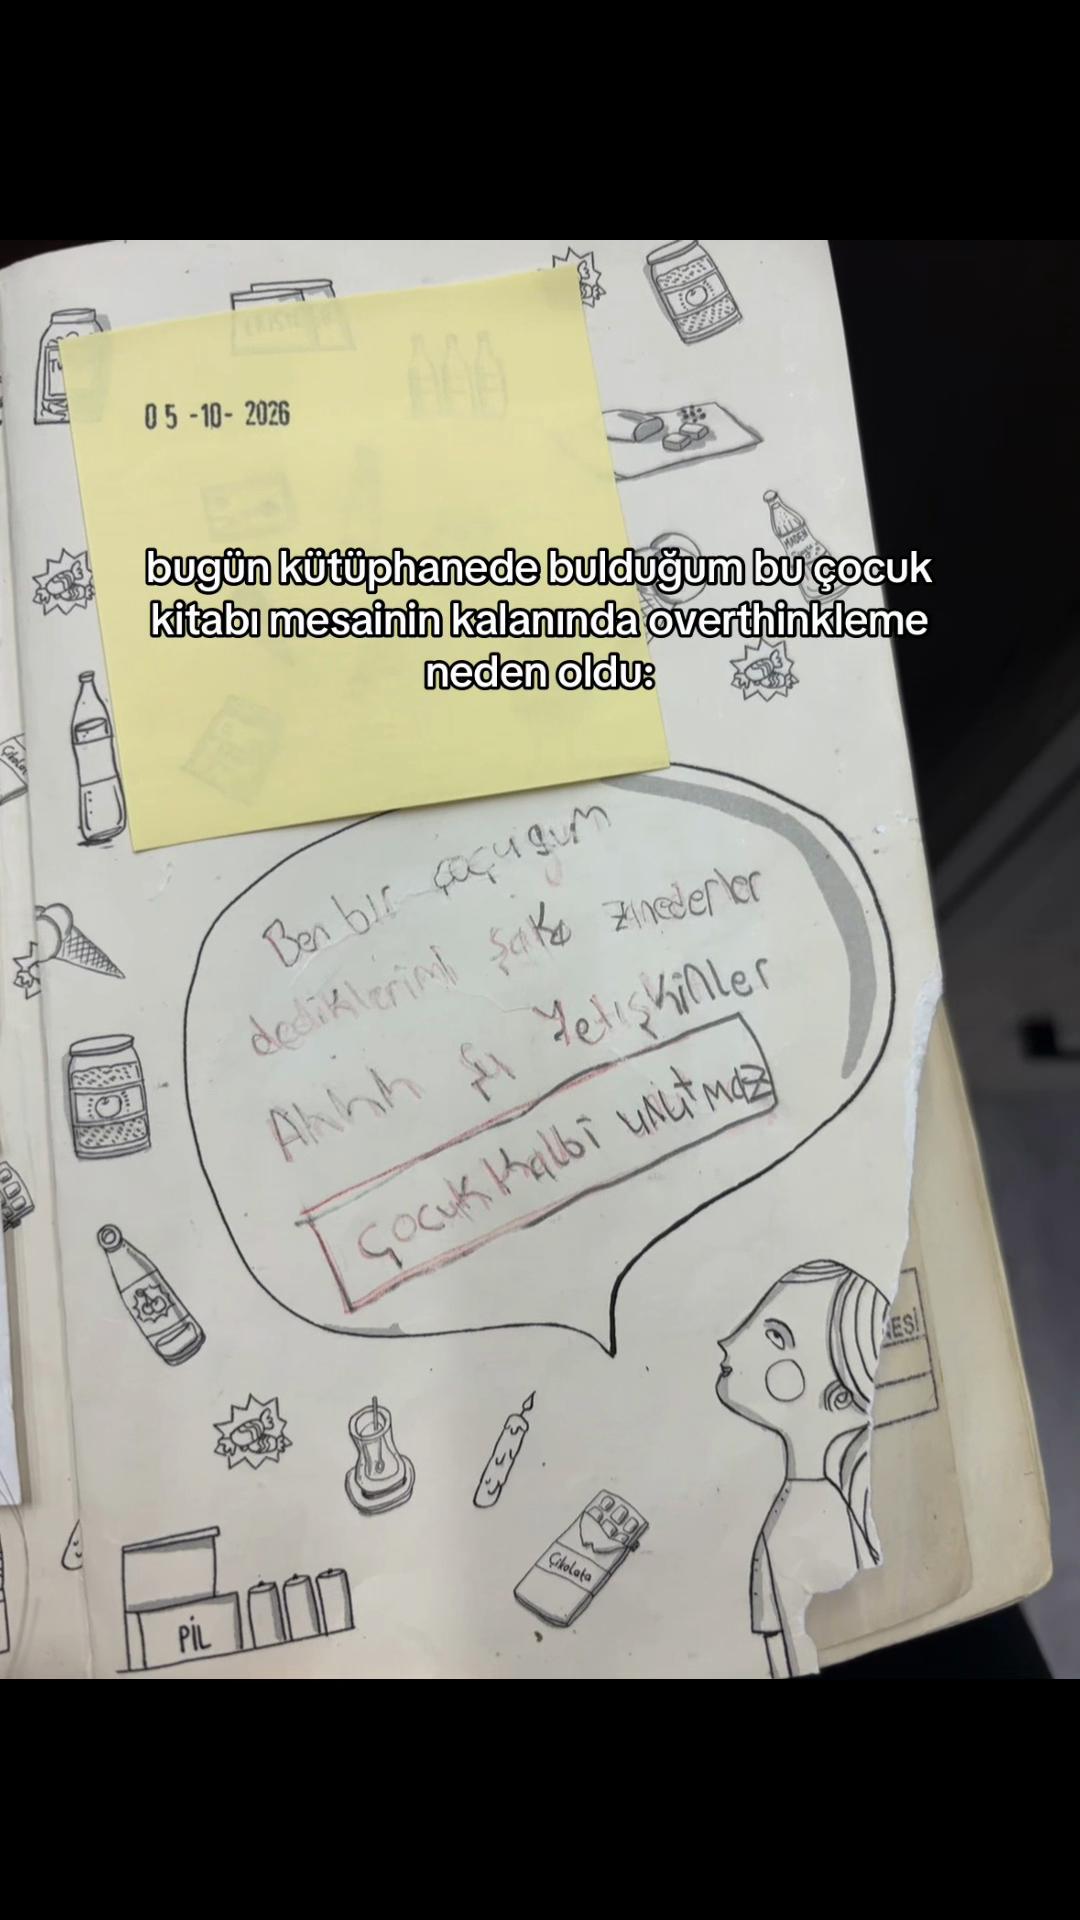 05-10-2026
bugün kütüphanede bulduğum bu çocuk
kitabı mesainin kalanında overthinkleme
neden oldu:
MADEN
Ben bir çoçuğum
dediklerimi şaka zanederler
Ahhh şu Yetişkinler
Çocuk Kalbi unutmaz
NESİ
Çikolata
PİL